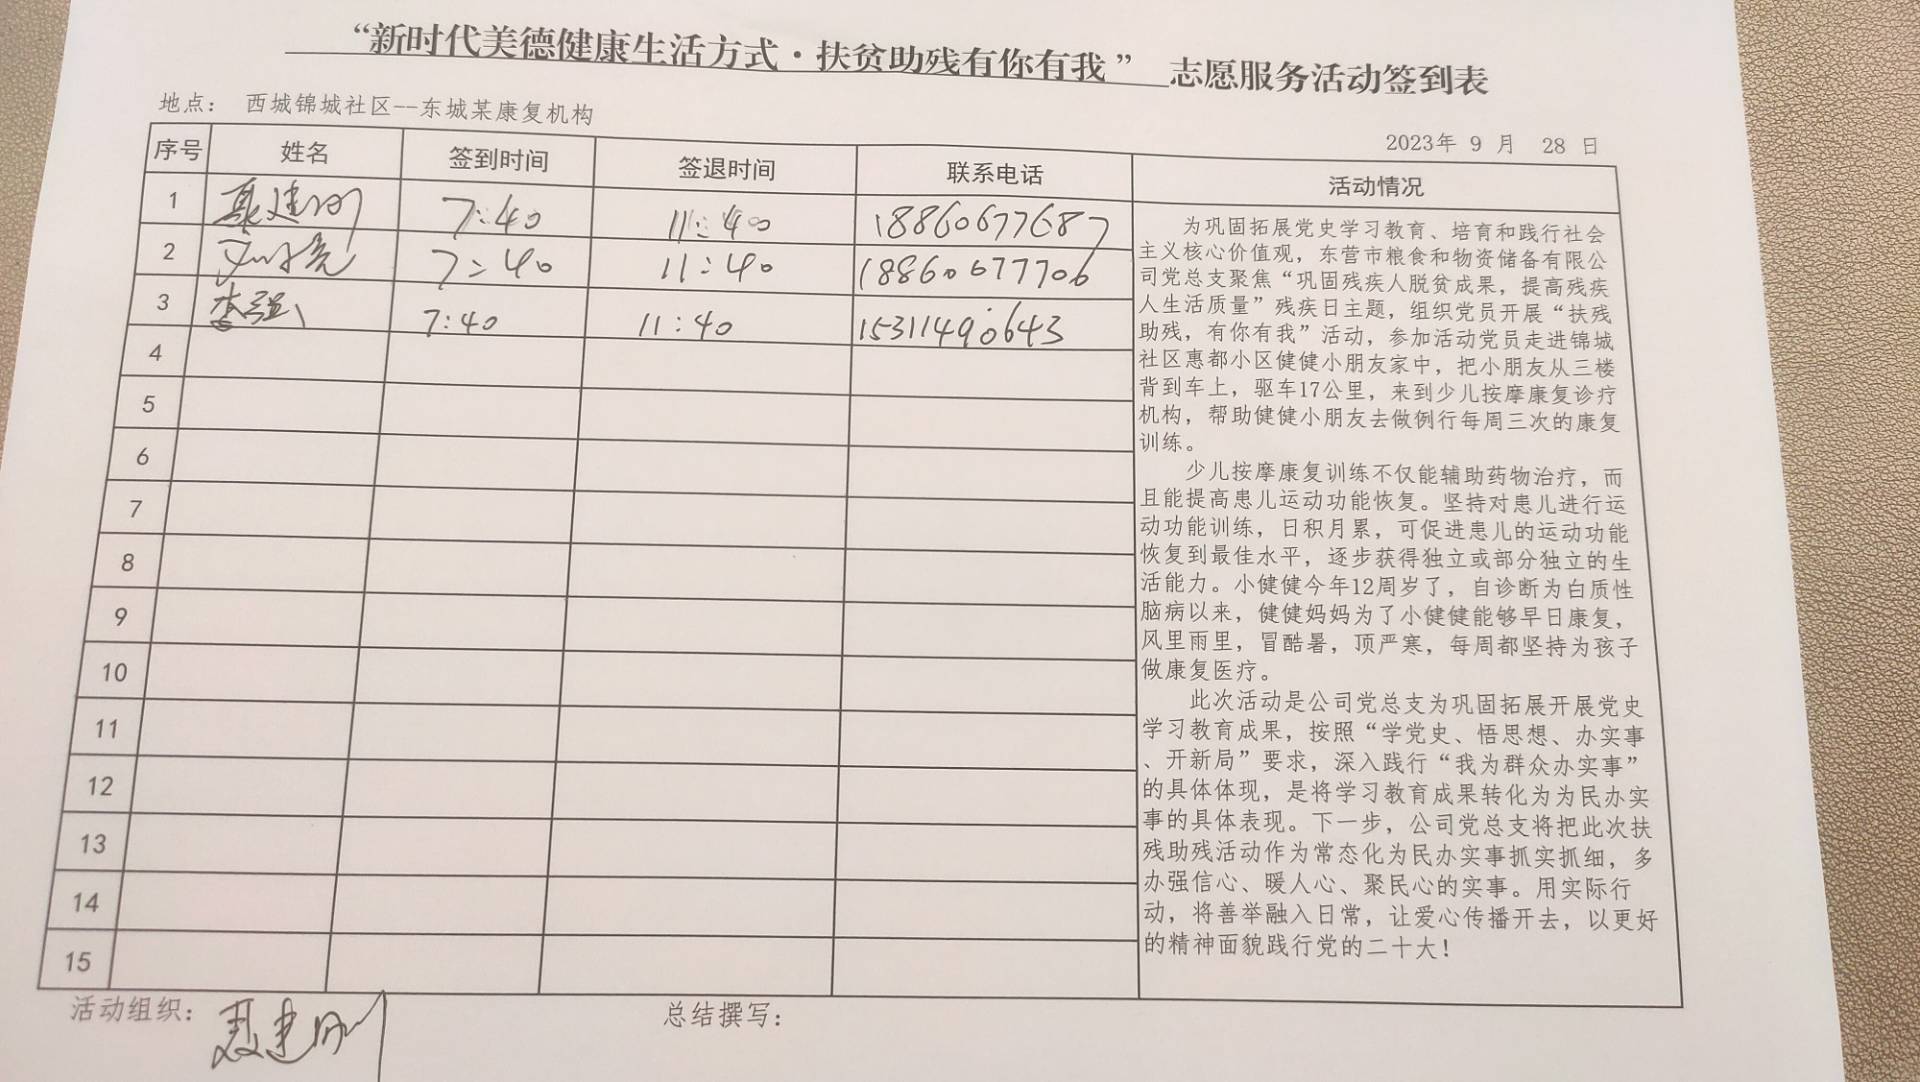 “新时代美德健康生活方式·扶贫助残有你有我” 志愿服务活动签到表
地点： 西城锦城社区--东城某康复机构
2023年 9 月 28 日
序号 姓名 签到时间 签退时间 联系电话 活动情况
1 聂建刚 7:40 11:40 18860677687
2 7:40 11:40 18860677706
3 李强 7:40 11:40 15311490643
4
5
6
7
8
9
10
11
12
13
14
15
为巩固拓展党史学习教育、培育和践行社会
主义核心价值观，东营市粮食和物资储备有限公
司党总支聚焦“巩固残疾人脱贫成果，提高残疾
人生活质量”残疾日主题，组织党员开展“扶残
助残，有你有我”活动，参加活动党员走进锦城
社区惠都小区健健小朋友家中，把小朋友从三楼
背到车上，驱车17公里，来到少儿按摩康复诊疗
机构，帮助健健小朋友去做例行每周三次的康复
训练。
少儿按摩康复训练不仅能辅助药物治疗，而
且能提高患儿运动功能恢复。坚持对患儿进行运
动功能训练，日积月累，可促进患儿的运动功能
恢复到最佳水平，逐步获得独立或部分独立的生
活能力。小健健今年12周岁了，自诊断为白质性
脑病以来，健健妈妈为了小健健能够早日康复，
风里雨里，冒酷暑，顶严寒，每周都坚持为孩子
做康复医疗。
此次活动是公司党总支为巩固拓展开展党史
学习教育成果，按照“学党史、悟思想、办实事
、开新局”要求，深入践行“我为群众办实事”
的具体体现，是将学习教育成果转化为为民办实
事的具体表现。下一步，公司党总支将把此次扶
残助残活动作为常态化为民办实事抓实抓细，多
办强信心、暖人心、聚民心的实事。用实际行
动，将善举融入日常，让爱心传播开去，以更好
的精神面貌践行党的二十大！
活动组织： 聂建刚 总结撰写：